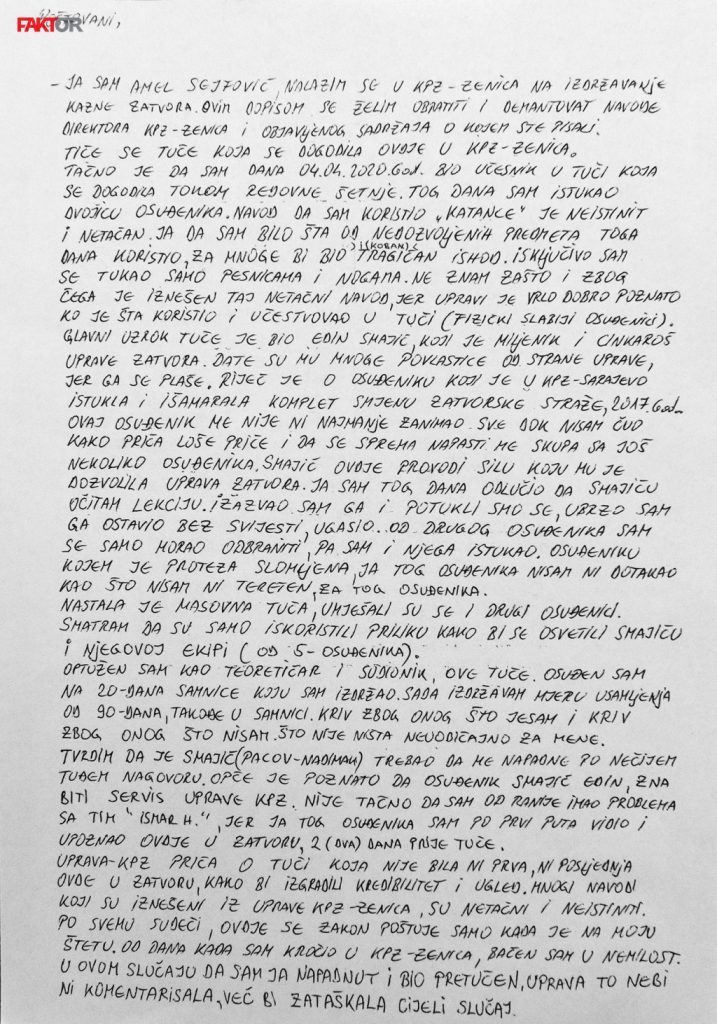 FAKTOR
POŠTOVANI,
- JA SAM AMEL SEJFOVIĆ, NALAZIM SE U KPZ-ZENICA NA IZDRŽAVANJE
KAZNE ZATVORA. OVIM DOPISOM SE ŽELIM OBRATITI I DEMANTOVAT NAVODE
DIREKTORA KPZ-ZENICA I OBJAVLJENOG SADRŽAJA O KOJEM STE PISALI.
TIČE SE TUČE KOJA SE DOGODILA OVDJE U KPZ-ZENICA.
TAČNO JE DA SAM DANA 04.04.2020.GOD. BIO UČESNIK U TUČI KOJA
SE DOGODILA TOKOM REDOVNE ŠETNJE. TOG DANA SAM ISTUKAO
DVOJICU OSUĐENIKA. NAVOD DA SAM KORISTIO „KATANCE" JE NEISTINIT
I NETAČAN. JA DA SAM BILO ŠTA OD NEDOZVOLJENIH PREDMETA TOGA
DANA KORISTIO, ZA MNOGE BI BIO TRAGIČAN ISHOD. ISKLJUČIVO SAM
SE TUKAO SAMO PESNICAMA I NOGAMA. NE ZNAM ZAŠTO I ZBOG
ČEGA JE IZNEŠEN TAJ NETAČNI NAVOD, JER UPRAVI JE VRLO DOBRO POZNATO
KO JE ŠTA KORISTIO I UČESTVOVAO U TUČI (FIZIČKI SLABIJI OSUĐENICI).
GLAVNI UZROK TUČE JE BIO EDIN SMAJIĆ, KOJI JE MILJENIK I CINKAROŠ
UPRAVE ZATVORA. DATE SU MU MNOGE POVLASTICE OD STRANE UPRAVE,
JER GA SE PLAŠE. RIJEČ JE O OSUĐENIKU KOJI JE U KPZ-SARAJEVO
ISTUKLA I IŠAMARALA KOMPLET SMJENU ZATVORSKE STRAŽE, 2017.GOD.
OVAJ OSUĐENIK ME NIJE NI NAJMANJE ZANIMAO. SVE DOK NISAM ČUO
KAKO PRIČA LOŠE PRIČE I DA SE SPREMA NAPASTI ME SKUPA SA JOŠ
NEKOLIKO OSUĐENIKA. SMAJIĆ OVDJE PROVODI SILU KOJU MU JE
DOZVOLILA UPRAVA ZATVORA. JA SAM TOG DANA ODLUČIO DA SMAJIĆU
OČITAM LEKCIJU. IZAZVAO SAM GA I POTUKLI SMO SE, UBRZO SAM
GA OSTAVIO BEZ SVIJESTI, UGASIO.. OD DRUGOG OSUĐENIKA SAM
SE SAMO MORAO ODBRANITI, PA SAM I NJEGA ISTUKAO. OSUĐENIKU
KOJEM JE PROTEZA SLOMLJENA, JA TOG OSUĐENIKA NISAM NI DOTAKAO
KAO ŠTO NISAM NI TERETEN, ZA TOG OSUĐENIKA.
NASTALA JE MASOVNA TUČA, UMJEŠALI SU SE I DRUGI OSUĐENICI.
SMATRAM DA SU SAMO ISKORISTILI PRILIKU KAKO BI SE OSVETILI SMAJIĆU
I NJEGOVOJ EKIPI (OD 5-OSUĐENIKA).
OPTUŽEN SAM KAO TEORETIČAR I SUDIONIK, OVE TUČE. OSUĐEN SAM
NA 20-DANA SAMNICE KOJU SAM IZDRŽAO. SADA IZDRŽAVAM MJERU USAMLJENJA
OD 90-DANA, TAKOĐE U SAMNICI. KRIV ZBOG ONOG ŠTO JESAM I KRIV
ZBOG ONOG ŠTO NISAM. ŠTO NIJE NIŠTA NEUOBIČAJNO ZA MENE.
TVRDIM DA JE SMAJIĆ (PACOV-NADIMAK) TREBAO DA ME NAPADNE PO NEČIJEM
TUĐEM NAGOVORU. OPĆE JE POZNATO DA OSUĐENIK SMAJIĆ EDIN, ZNA
BITI SERVIS UPRAVE KPZ. NIJE TAČNO DA SAM OD RANIJE IMAO PROBLEMA
SA TIM "ISMAR H.", JER JA TOG OSUĐENIKA SAM PO PRVI PUTA VIDIO I
UPOZNAO OVDJE U ZATVORU, 2 (DVA) DANA PRIJE TUČE.
UPRAVA-KPZ PRIČA O TUČI KOJA NIJE BILA NI PRVA, NI POSLJEDNJA
OVDE U ZATVORU, KAKO BI IZGRADILI KREDIBILITET I UGLED. MNOGI NAVODI
KOJI SU IZNEŠENI IZ UPRAVE KPZ-ZENICA, SU NETAČNI I NEISTINITI.
PO SVEMU SUDEĆI, OVDJE SE ZAKON POŠTUJE SAMO KADA JE NA MOJU
ŠTETU. OD DANA KADA SAM KROČIO U KPZ-ZENICA, BAČEN SAM U NEMILOST.
U OVOM SLUČAJU DA SAM JA NAPADNUT I BIO PRETUČEN, UPRAVA TO NEBI
NI KOMENTARISALA, VEĆ BI ZATAŠKALA CIJELI SLUČAJ.